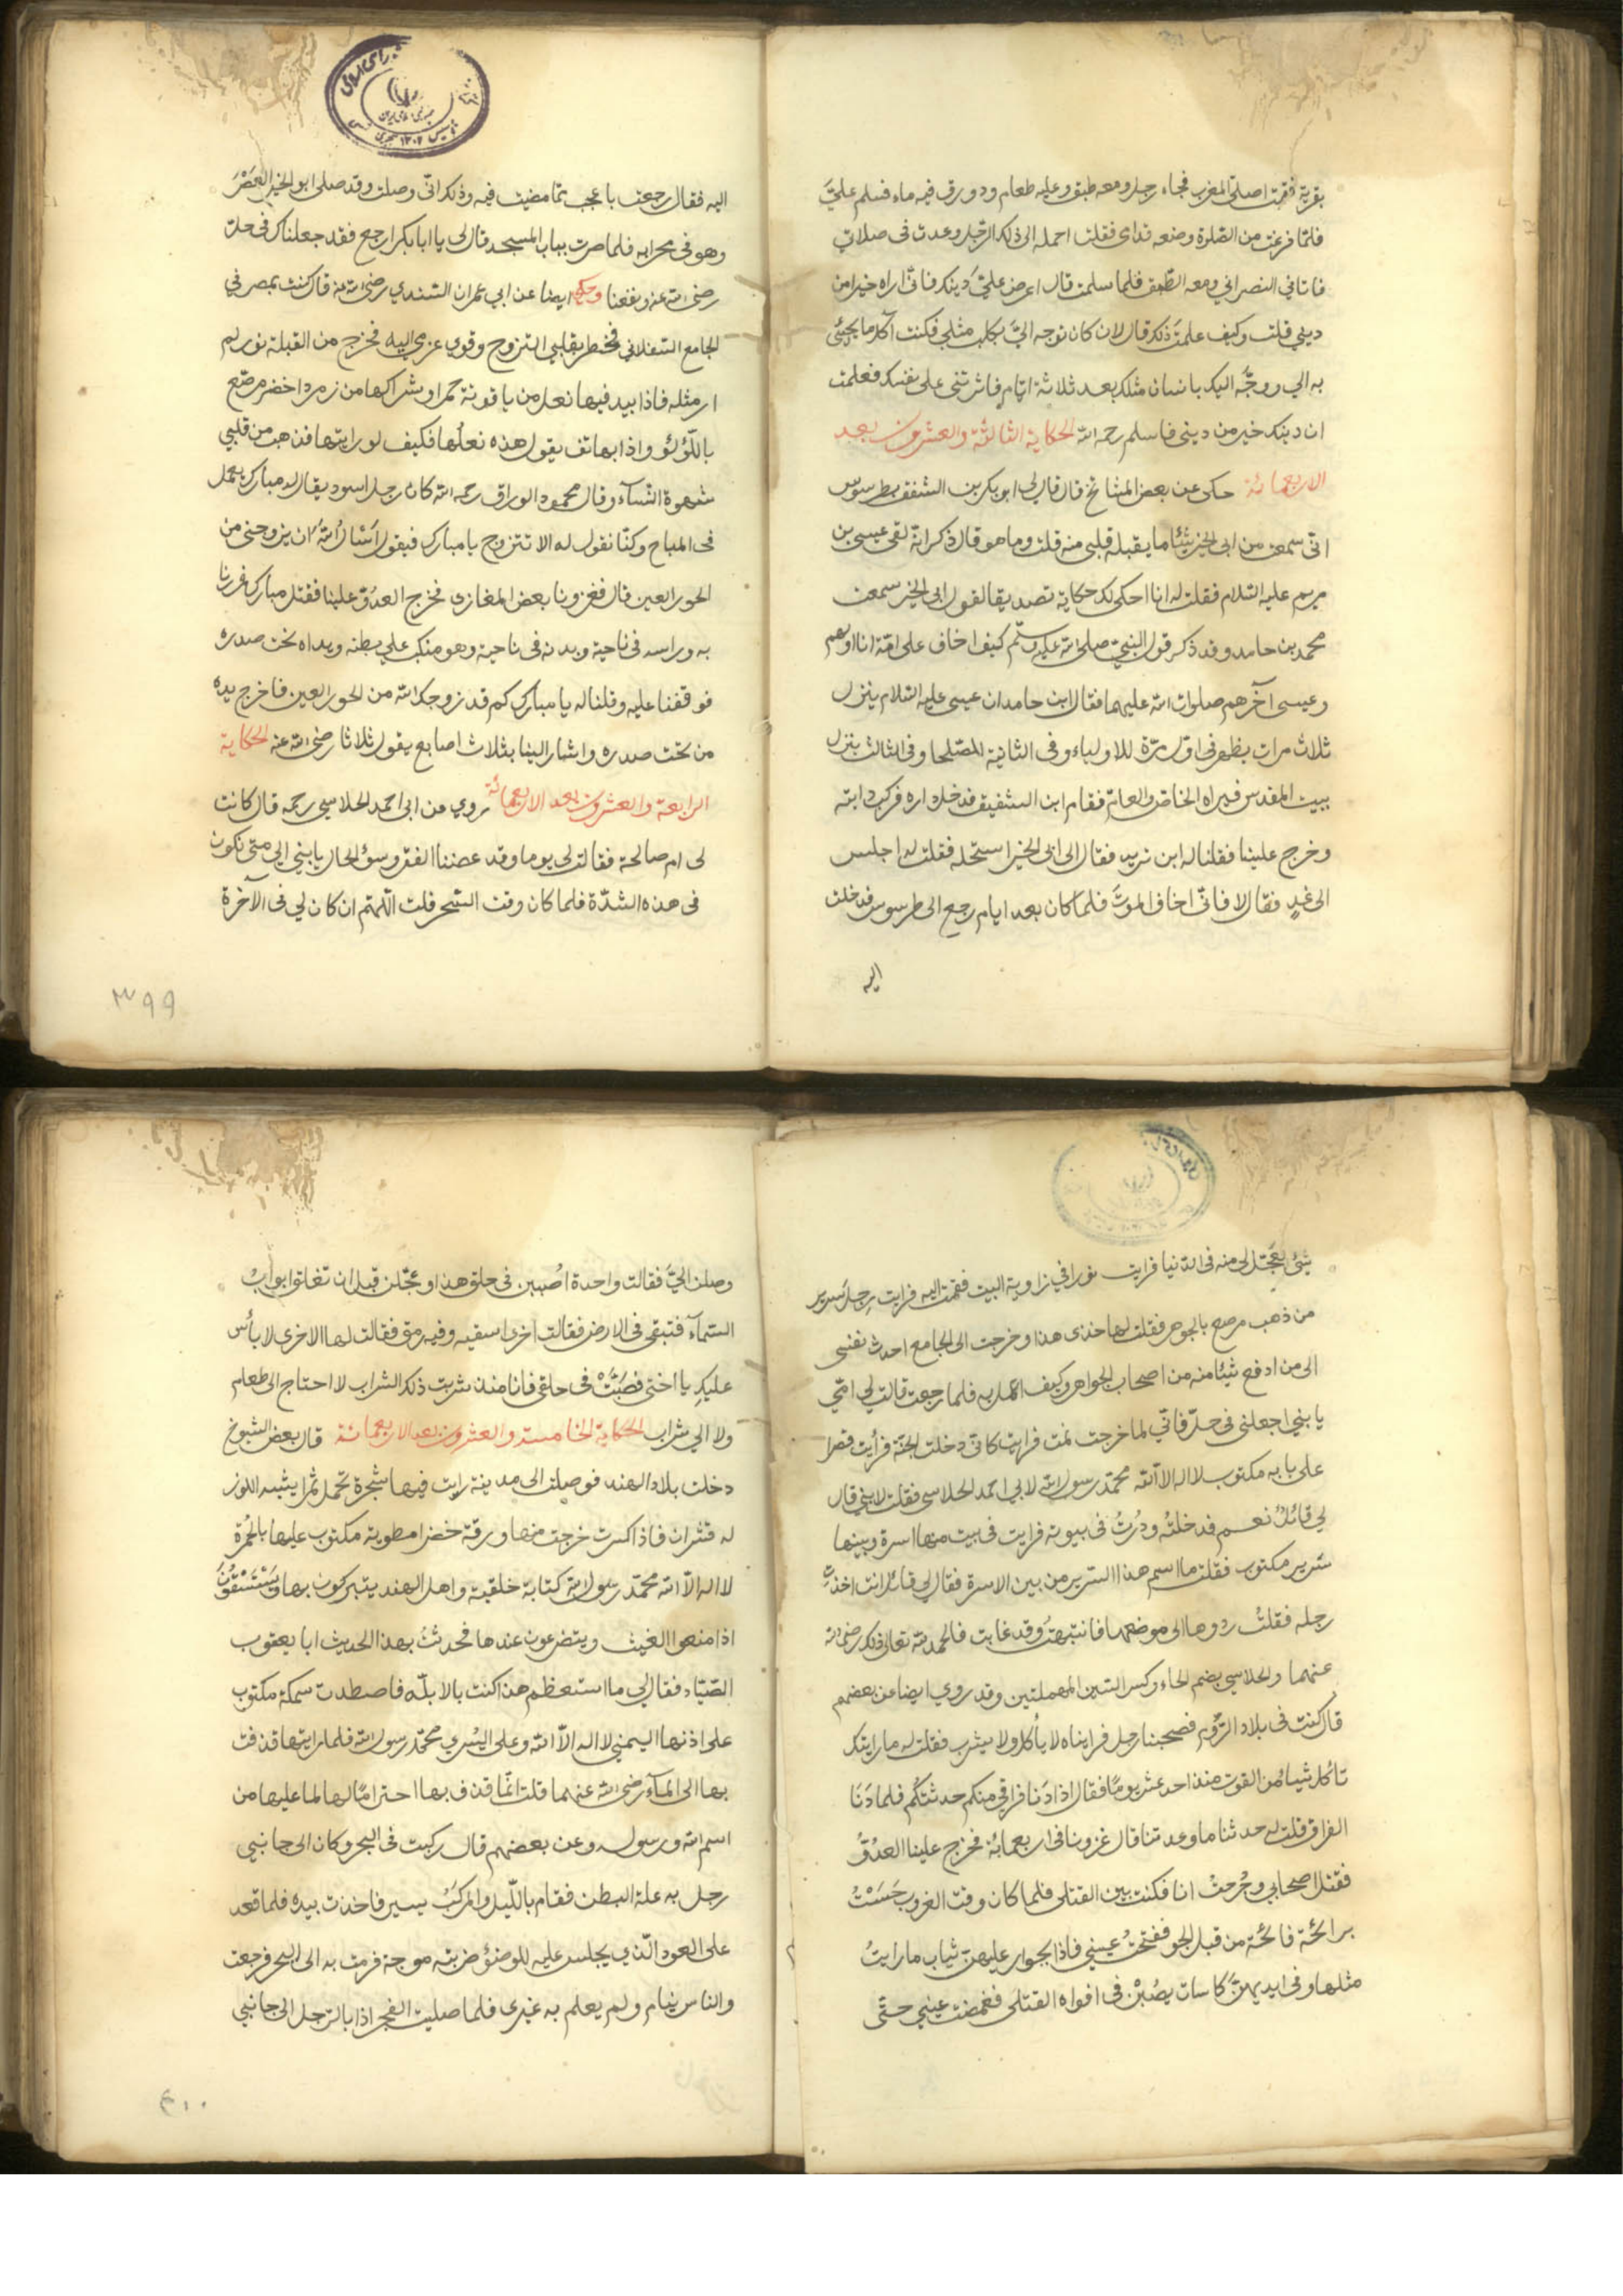 بقرية فقمت اصلي المغرب فجاء رجل ومعه طبق وعليه طعام ودورق فيه ماء فسلم عليَّ
فلمّا فرغت من الصّلوة وضعه قداى فقلت احمله الى ذلك الرّجل وعدت فى صلاتى
فاتاني النصراني ومعه الطّبق فلما سلمت قال اعرض عليَّ دينك فانّى اراه خيرا من
ديني قلت وكيف علمت ذلك قال لان كان توجه اليَّ بكلب مثلي فكنت آكل ما يجيئ
به الي ووجّه اليك بانسان مثلك بعد ثلاثة ايّام فاثرتنى على نفسك فعلمت
ان دينك خير من دينى فاسلم رحمه الله الحكاية الثالثة والعشرون بعد
الاربعمائة حكى عن بعض المشائخ قال قال لى ابو بكر بن الشفق بطرسوس
انّى سمعت من ابى الخير شيئا ما يقبله قلبى منه قلت وما هو قال ذكر انه لقى عيسى بن
مريم عليه السّلام فقلت له انا احكى لك حكاية تصديقا لقول ابى الخير سمعت
محمد بن حامد وقد ذكر قول النبيّ صلى الله عليه وسلّم كيف اخاف على امّة انا اولهم
وعيسى آخرهم صلوات الله عليهما فقال ابن حامد ان عيسى عليه السّلام ينزل
ثلاث مرات يظهر فى اوّل مرّة للاولياء وفى الثانية للصّلحا وفى الثالث ينزل
ببيت المقدس فيراه الخاصّ والعامّ فقام ابن الشفيق فدخل داره فركب دابته
وخرج علينا فقلنا له اين تريد فقال الى ابى الخير استحله فقلت له اجلس
الى غدٍ فقال لا فانّى اخاف الموتَ فلما كان بعد ايام رجع الى طرسوس فدخلت
اليه
اليه فقال رجعت باعجب ممّا مضيت فيه وذلك انّى وصلت وقد صلى ابو الخير العَصْرَ
وهو فى محرابه فلما صرت بباب المسجد قال لى يا ابا بكر ارجع فقد جعلناك فى حل
رضى الله عنه ونفعنا وحكي ايضا عن ابي عمران السّندي رضى الله عنه قال كنت بمصر في
الجامع السّفلاني فخطر بقلبي التزوج وقوي عزمي اليه فخرج من القبلة نور لم
ار مثله فاذا بيد فيها نعل من ياقوتة حمرا وشراكها من زمرد اخضر مرصّع
باللّؤلؤ واذا بهاتف يقول هذه نعلها فكيف لو رايتها فذهبت من قلبي
شهوة النّسآء وقال محمود الوراق رحمه الله كان رجل اسود يقال له مبارك يعمل
فى المباح وكنّا نقول له الا تتزوج يا مبارك فيقول اَسْاَلُ اللهَ اَن يزوجنى من
الحور العين قال فغزونا بعض المغازى فخرج العدوّ علينا فقتل مبارك فمررنا
به وراسه فى ناحية وبدنه فى ناحية وهو منكبّ علي بطنه ويداه تحت صدره
فوقفنا عليه وقلنا له يا مبارك كم قد زوجك الله من الحور العين فاخرج يده
من تحت صدره واشار الينا بثلاث اصابع يقول ثلاثا رضى الله عنه الحكاية
الرابعة والعشرون بعد الاربعمائة روي من ابى احمد الحلاسي رحمه قال كانت
لى ام صالحة فقالت لى يوما وقد عضنا الفقر وسؤ الحال يا بنى الى متى نكون
فى هذه الشدّة فلما كان وقت السّحر قلت اللّهمّ ان كان لي فى الآخرة
٣٩٩
شئ يعَجّل لى منه فى الدّنيا فرايت نورا في زاوية البيت فقمت اليه فرايت رِجل سرير
من ذهب مرصع بالجوهر فقلت لها خذى هذا وخرجت الى الجامع احدث نفسى
الى من ادفع شيئا منه من اصحاب الجواهر وكيف اعمل به فلما رجعت قالت لى امّي
يا بني اجعلنى فى حلّ فانّي لما خرجت نمت فرايت كانى دخلت الجنّة فرأيت قصرا
على بابه مكتوب لا اله الا الله محمّد رسول الله لابي احمد الحلاسى فقلت لابني قال
لي قائلٌ نعم فدخلتُه ودُرتُ فى بيوته فرايت فى بيت منها اسرة وبينها
سرير مكتوب فقلت ما اسم هذا السّرير من بين الاسرة فقال لي قائل انت اخذتِ
رجله فقلتُ ردوها الى موضعها فانتبهتُ وقد غابت فالحمد لله تعالى ذلك رضى الله
عنهما والحلاسي بضم الحاء وكسر السّين المهملتين وقد روي ايضا عن بعضهم
قال كنت فى بلاد الرّوم فصحبنا رجل فرايناه لا يأكل ولا يشرب فقلت له ما رايتك
تاكل شيا من القوت منذ احد عشر يومًا فقال اذا دَنا فراقي منكم حدثتكم فلما دَنَا
الفراق قلت له حدثنا ما وعدتنا قال غزونا فى اربعمائة فخرج علينا العدوّ
فقتل اصحابي وجُرِحتُ انا فكنت بين القتلى فلما كان وقت الغروب حَسَسْتُ
برائحة فائحة من قبل الجو ففتحتُ عيني فاذا بجوار عليهن ثياب ما رايتُ
مثلها وفى ايديهنَّ كاسات يصُبْنَ فى افواه القتلى فغمضت عيني حتّى
وصلن اليَّ فقالت واحدة اُصْببن فى حلق هذا وعجّلن قبل ان تغلق ابوابُ
السّمآء فتبقى فى الارض فقالت اخرى اسقيه وفيه رمق فقالت لها الاخرى لا بأس
عليكِ يا اختى فصَبَّتْ فى حلقي فانا منذ شربت ذلك الشراب لا احتاج الى طعام
ولا الي شراب الحكاية الخامسة والعشرون بعد الاربعمائة قال بعض الشيوخ
دخلت بلاد الهند فوصلت الى مدينة رايت فيها شجرة تحمل ثمرا يشبه اللوز
له قشران فاذا كسرت خرجت منها ورقة خضرا مطوية مكتوب عليها بالحُمرة
لا اله الّا الله محمّد رسول الله كتابة خلقية واهل الهند يتبركون بها ويَسْتَسْقُونَ
اذا منعوا الغيث ويتضرعون عندها فحدثتُ بهذا الحديث ابا يعقوب
الصّيّاد فقال لي ما استعظم هذا كنت بالابلّة فاصطدت سمكة مكتوب
على اذنها اليمنى لا اله الّا الله وعلى اليُسري محمّد رسول الله فلما رايتها قذفت
بها الى المآء رضى الله عنهما قلت انّما قذف بها احترامًا لها لما عليها من
اسم الله ورسوله وعن بعضهم قال ركبت فى البحر وكان الى جانبي
رجل به علة البطن فقام باللّيل والمركبُ يسير فاخذت بيده فلما قعد
على العود الّذي يجلس عليه للوضؤ ضربته موجة فرمت به الى البحر فرجعت
والناس ينام ولم يعلم به غيرى فلما صليت الفجر اذا بالرّجل الى جانبي
٤٠٠